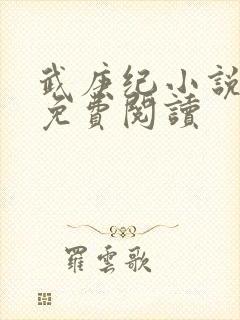 武庚纪小說
免費閱讀
羅雲歌